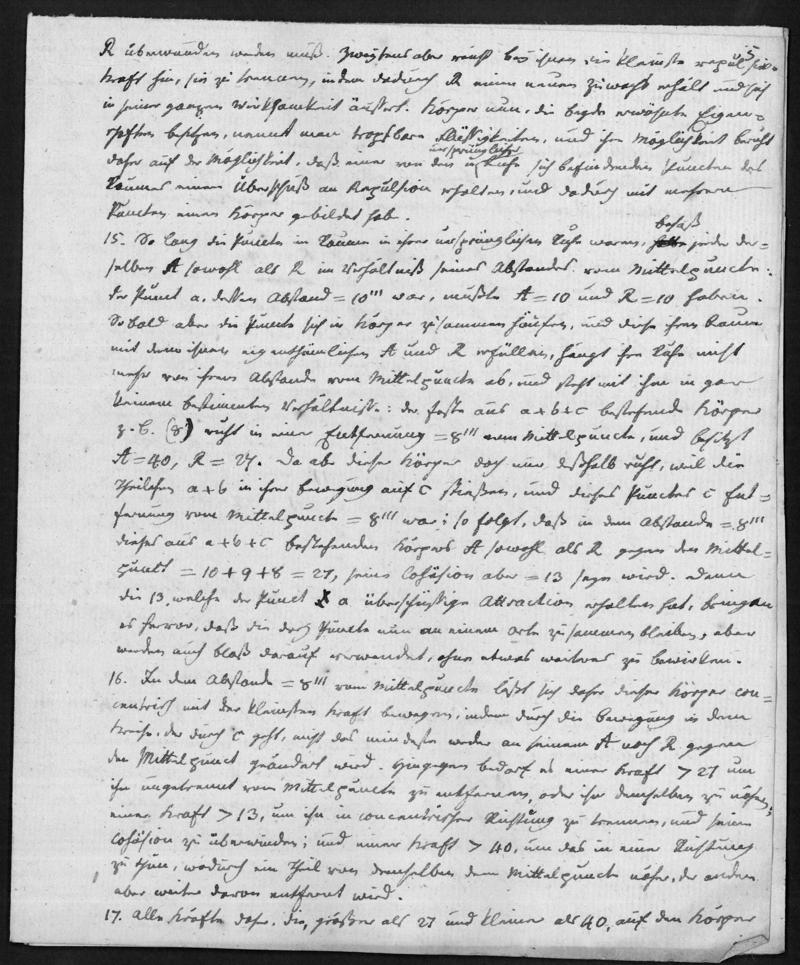 5
R überwunden werden muß. Zweytens aber reicht bey ihnen die kleinste repulsiv-
kraft hin, sie zu trennen, indem dadurch R einen neuen Zuwachs erhält und sich
in seiner ganzen Wirksamkeit äussert. Körper nun, die beyde erwähnte Eigen=
schaften besitzen, nennt man tropfbare Flüssigkeiten, und ihre Möglichkeit beruht
daher auf der Möglichkeit, daß einer von den in ursprünglicher Ruhe sich befindenden Puncten des
Raumes einen Überschuß an Repulsion erhalten, und dadurch mit mehreren
Puncten einen Körper gebildet hab.
15. So lang die Puncte im Raume in ihrer ursprünglichen Ruhe waren, besaß jeder der=
selben A sowohl als R im Verhältniß seines Abstandes vom Mittelpuncte:
der Punct a, dessen Abstand = 10''' war, mußte A = 10 und R = 10 haben.
Sobald aber die Puncte sich in Körper zusammen häufen, und diese ihren Raum
mit dem ihnen eigenthümlichen A und R erfüllen, hängt ihre Ruhe nicht
mehr von ihrem Abstande vom Mittelpuncte ab, und steht mit ihm in gar
keinem bestimmten Verhältniß: der feste aus a+b+c bestehende Körper
z. B. (8) ruht in einer Entfernung = 8''' vom Mittelpuncte, und besitzt
A = 40, R = 27. Da aber dieser Körper doch nur deßhalb ruht, weil die
Theilchen a+b in ihrer Bewegung auf c stießen, und dieses Punctes c Ent=
fernung vom Mittelpuncte = 8''' war; so folgt, daß in dem Abstande = 8'''
dieses aus a+b+c bestehenden Körpers A sowohl als R gegen den Mittel=
punct = 10 + 9 + 8 = 27, seine Cohäsion aber = 13 seyn wird. Denn
die 13, welche der Punct a überschüssige Attraction erhalten hat, bringen
es hervor, daß die drey Puncte nun an einem Orte zusammen bleiben, aber
werden auch bloß darauf verwendet, ohne etwas weiteres zu bewirken.
16. In dem Abstande = 8''' vom Mittelpuncte läßt sich daher dieser Körper con=
centrisch mit der kleinsten Kraft bewegen, indem durch die Bewegung in dem
Kreise, der durch c geht, nicht das mindeste weder an seinem A noch R gegen
den Mittelpunct geändert wird. Hingegen bedarf es einer Kraft > 27 um
ihn ungetrennt vom Mittelpuncte zu entfernen, oder ihn demselben zu nähern;
einer Kraft > 13, um ihn in concentrischer Richtung zu trennen, und seine
Cohäsion zu überwinden; und einer Kraft > 40, um das in einer Richtung
zu thun, wodurch ein Theil von demselben dem Mittelpuncte näher, der andere
aber weiter davon entfernt wird.
17. Alle Kräfte daher, die, größer als 27 und kleiner als 40, auf den Körper